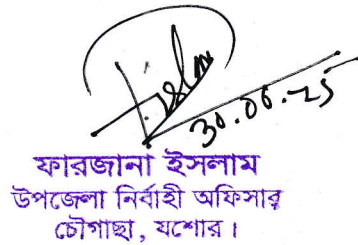 F. Islam
30.06.25
ফারজানা ইসলাম
উপজেলা নির্বাহী অফিসার
চৌগাছা, যশোর।